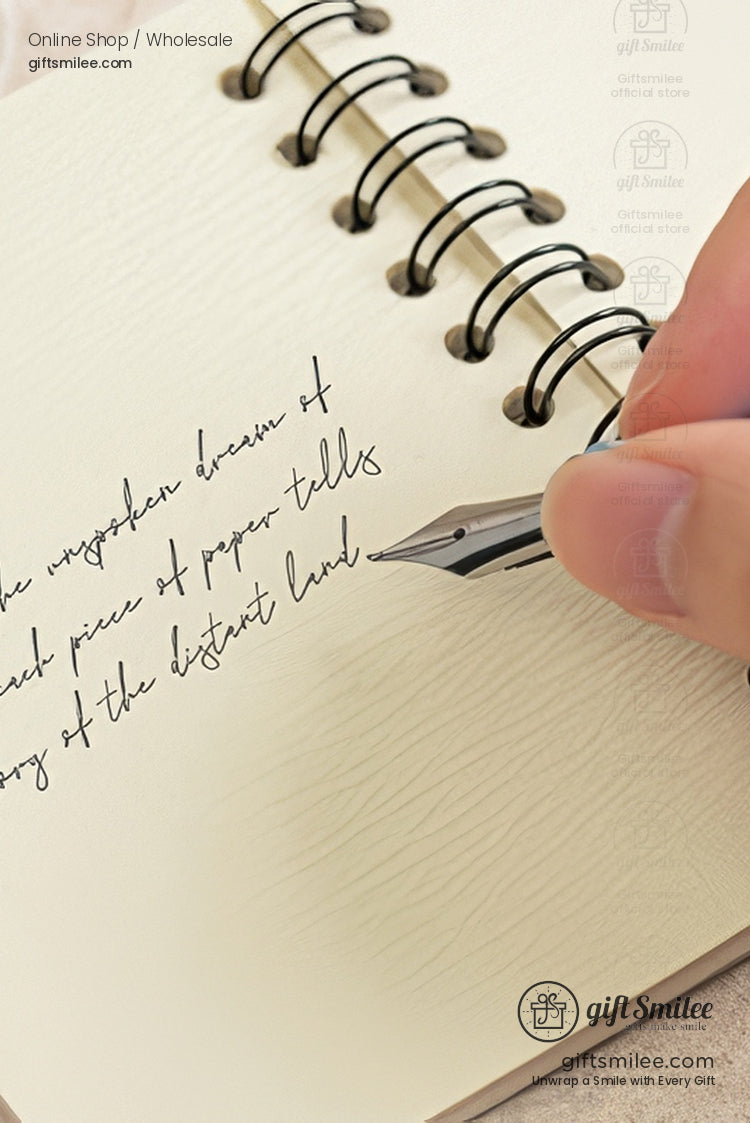 Online Shop / Wholesale
giftsmilee.com
gift Smilee
Giftsmilee
official store
gift Smilee
Giftsmilee
official store
gift Smilee
Giftsmilee
official store
Giftsmilee
official store
Giftsmilee
official store
the unspoken dream of
each piece of paper tells
of the distant land
gift Smilee
gifts make smile
giftsmilee.com
Unwrap a Smile with Every Gift